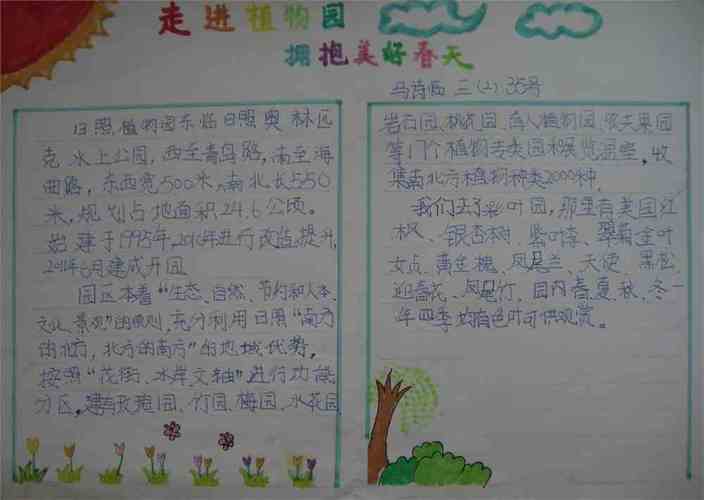 走进植物园
拥抱美好春天
马诗 三(2) 35号
日照植物园东临日照奥林匹
克水上公园,西至青岛路,南至海
曲路,东西宽500米,南北长550
米,规划占地面积24.6公顷。
始建于1995年,2010年进行改造提升,
2011年6月建成开园
园区本着“生态、自然、节约和人本、
文化、景观”的原则,充分利用日照“南方
的北方,北方的南方”的地域优势,
按照“花街、水岸、文轴”进行功能
分区,建有玫瑰园、竹园、梅园、水花园
岩石园、树 园、盲人植物园、农夫果园
等17个植物专类园和展览温室,收
集南北方植物种类2000种.
我们去了彩叶园,那里有美国红
枫、银杏树、紫叶李、 金叶
女贞、黄金槐、凤尾兰、天使、黑松、
迎春花、凤尾竹,园内春、夏、秋、冬一
年四季均有色叶可供观赏。